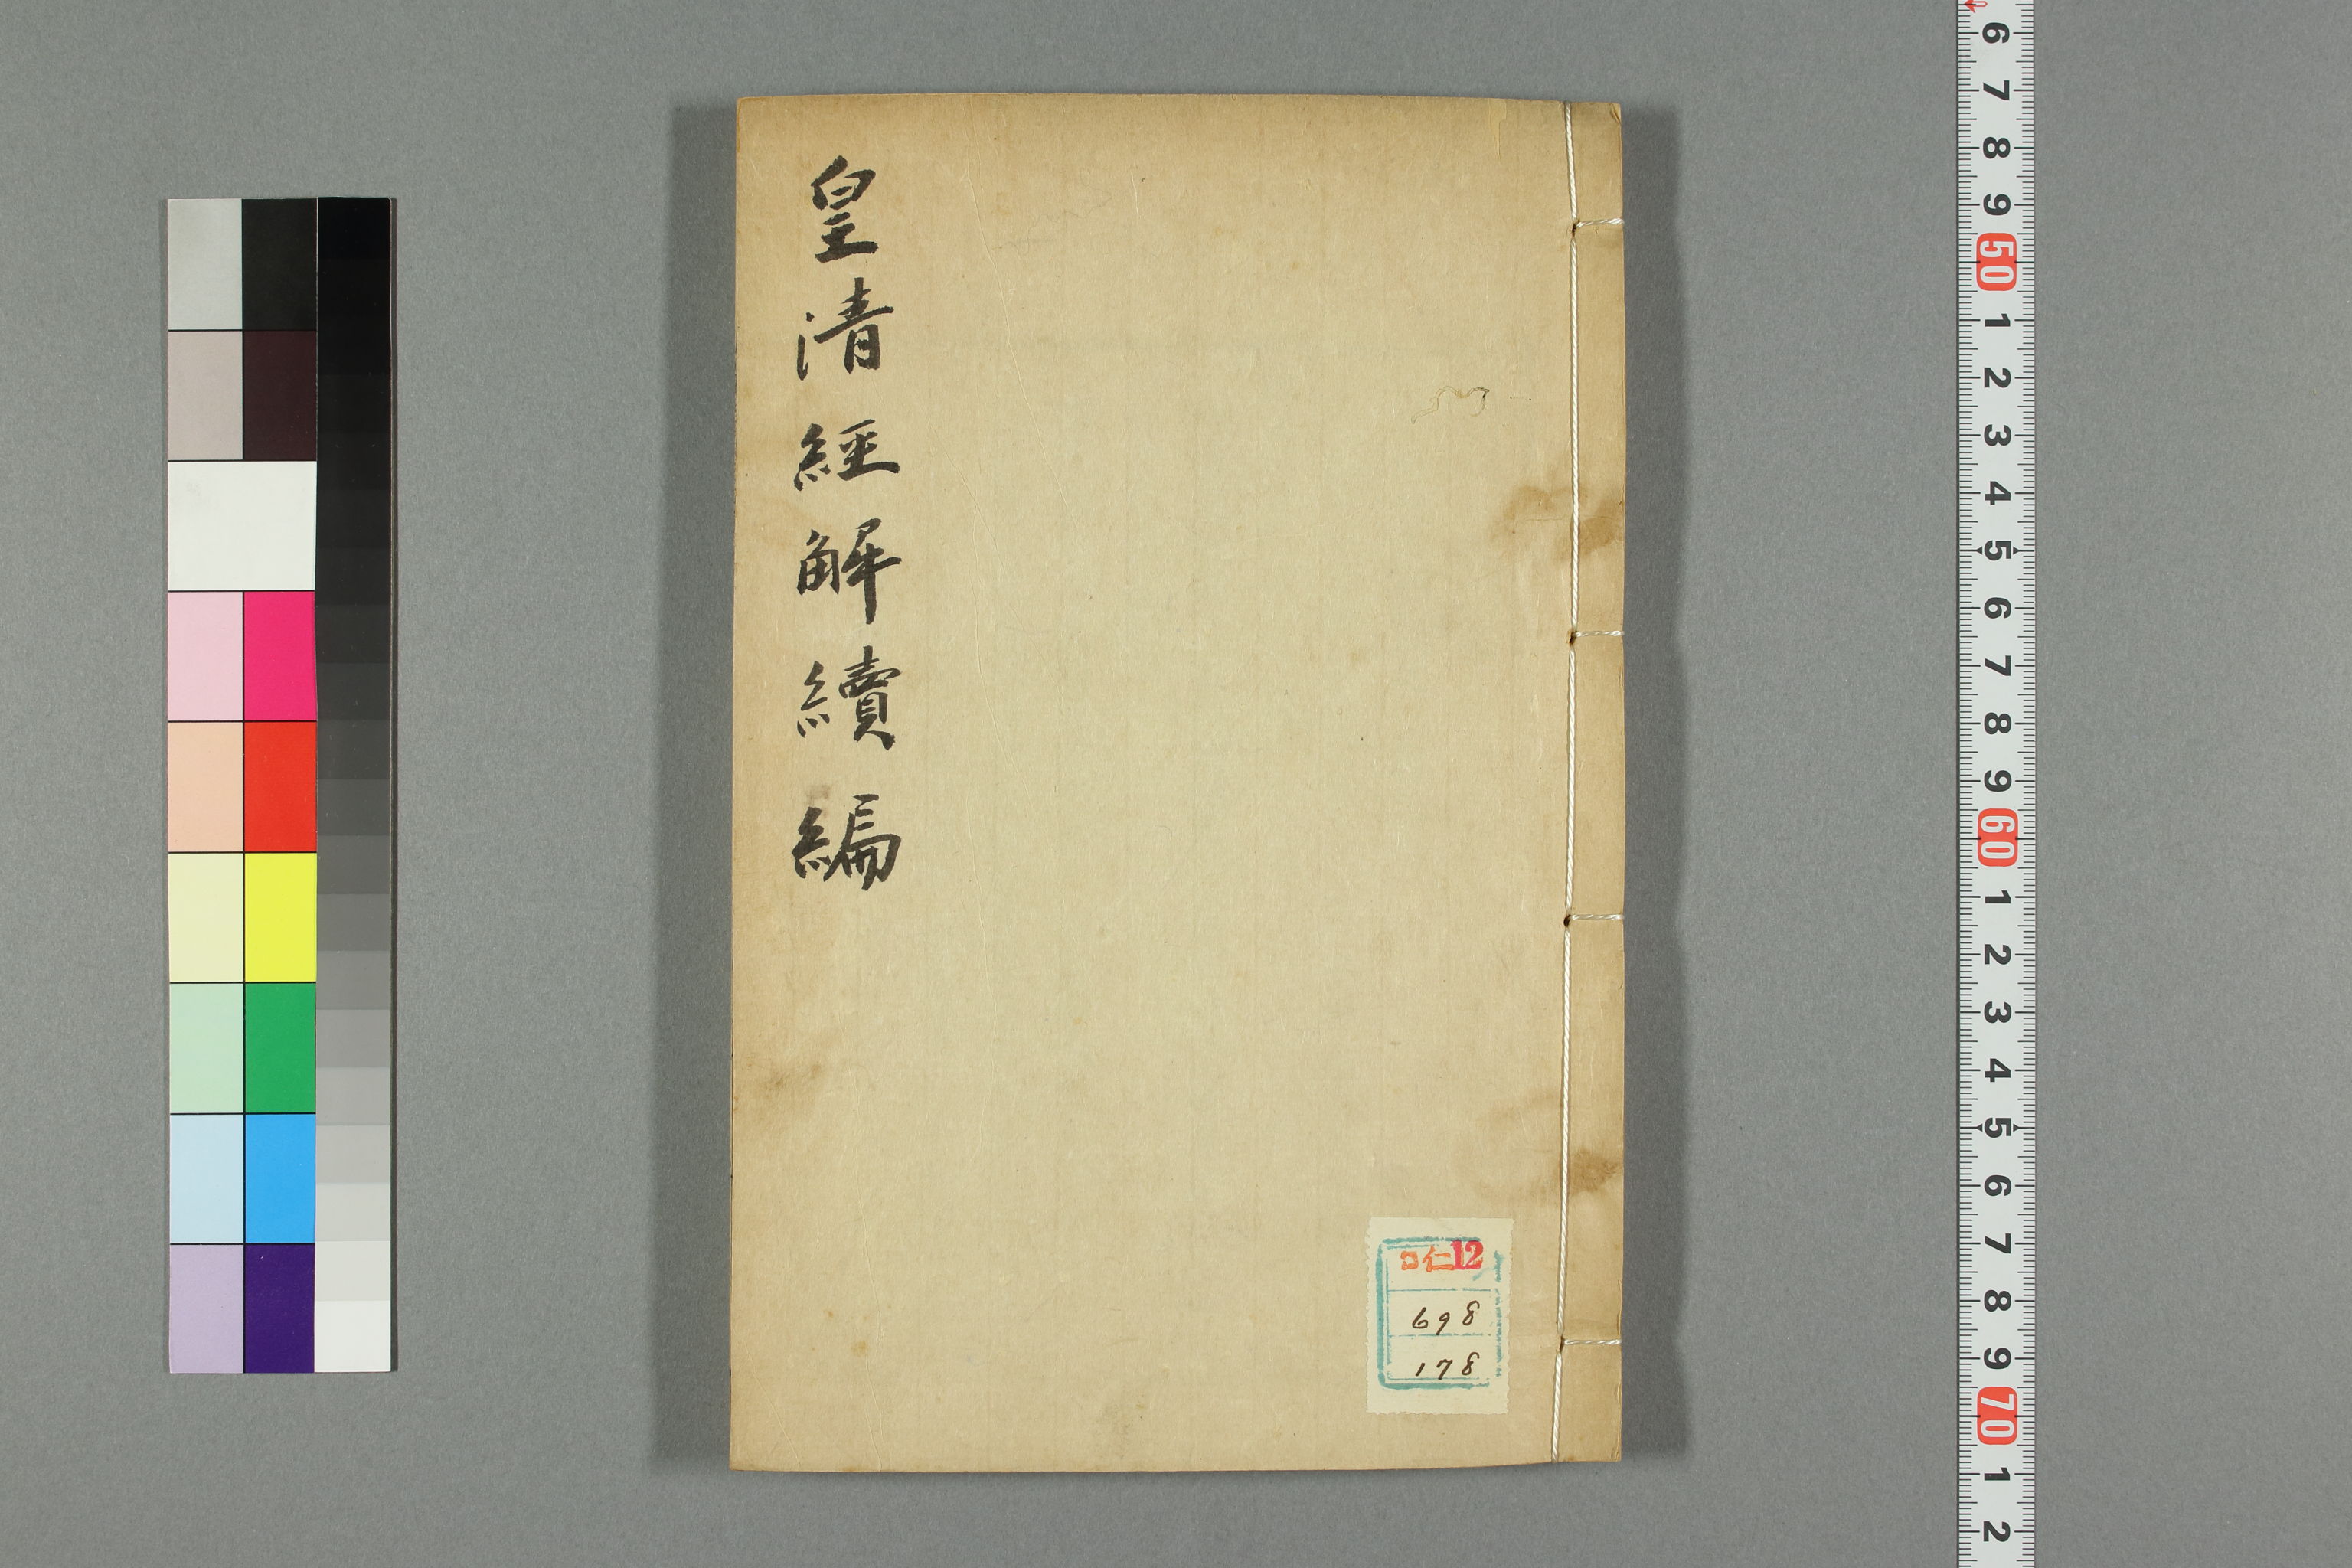 皇清經解續編
ロ仁12
698
178
6
7
8
9
50
1
2
3
4
5
6
7
8
9
60
1
2
3
4
5
6
7
8
9
70
1
2